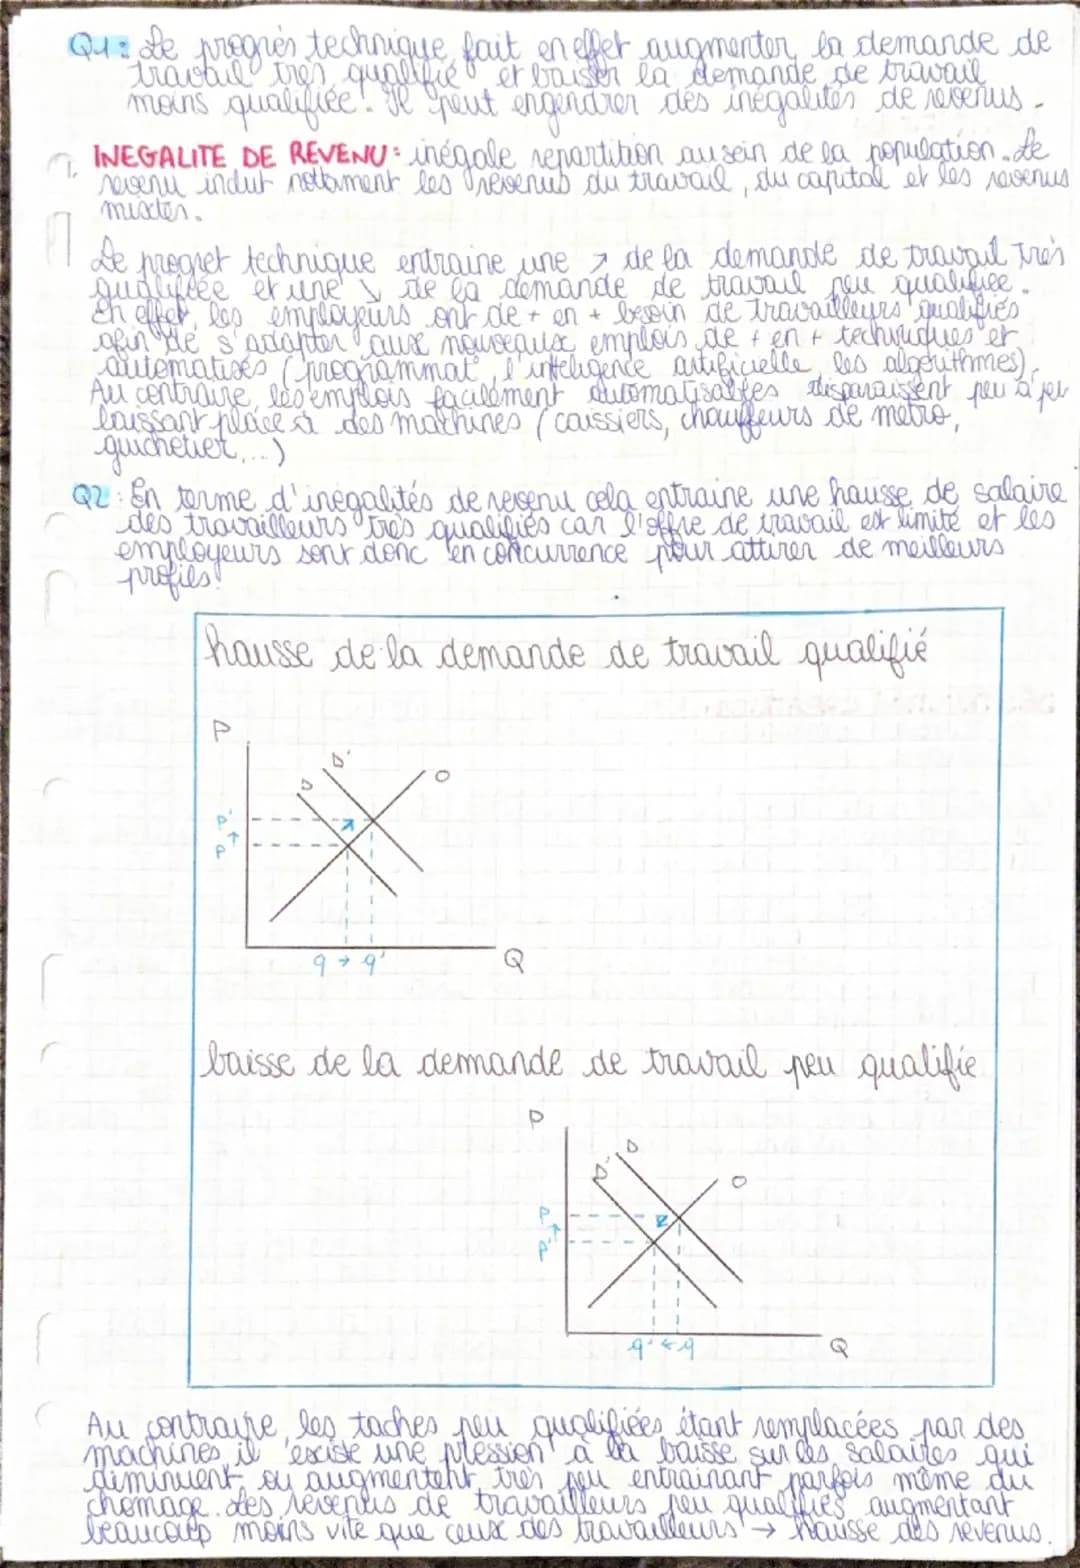 Q1: Le progrès technique fait en effet augmenter la demande de
travail très qualifié et baisser la demande de travail
moins qualifiée. Il peut engendrer des inégalités de revenus.
INEGALITE DE REVENU: inégale repartition au sein de la population. Le
revenu inclut nottament les revenus du travail, du capital et les revenus
mixtes.
Le progret technique entraine une ↗ de la demande de travail très
qualifiée et une ↘ de la demande de travail peu qualifiée.
En effet, les employeurs ont de + en + besoin de travailleurs qualifiés
afin de s'adapter aux nouveaux emplois de + en + techniques et
automatisés (programmat°, l'inteligence artificielle, les algorithmes).
Au contraire, les emplois facilement automatisables disparaissent peu à peu
laissant place à des machines (caissiers, chauffeurs de métro,
guichetier,...)
Q2: En terme d'inégalités de revenu cela entraine une hausse de salaire
des travailleurs très qualifiés car l'offre de travail est limité et les
employeurs sont donc en concurrence pour attirer de meilleurs
profiles.
hausse de la demande de travail qualifié
P
D'
D
O
P'
↑
P
q → q'
Q
baisse de la demande de travail peu qualifié
P
D
D'
O
P
↑
P'
q' ← q
Q
Au contraire, les taches peu qualifiées étant remplacées par des
machines, il existe une pression à la baisse sur les salaires qui
diminuent ou augmentent très peu entrainant parfois même du
chomage. Les revenus de travailleurs peu qualifiés augmentant
beaucoup moins vite que ceux des travailleurs → hausse des revenus.